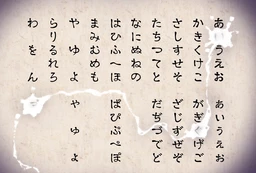 あいうえお
かきくけこ
さしすせそ
たちつてと
なにぬねの
はひふへほ
まみむめも
や ゆ よ
らりるれろ
わ を ん
あいうえお
がぎぐげご
ざじずぜぞ
だぢづでど
や ゆ よ